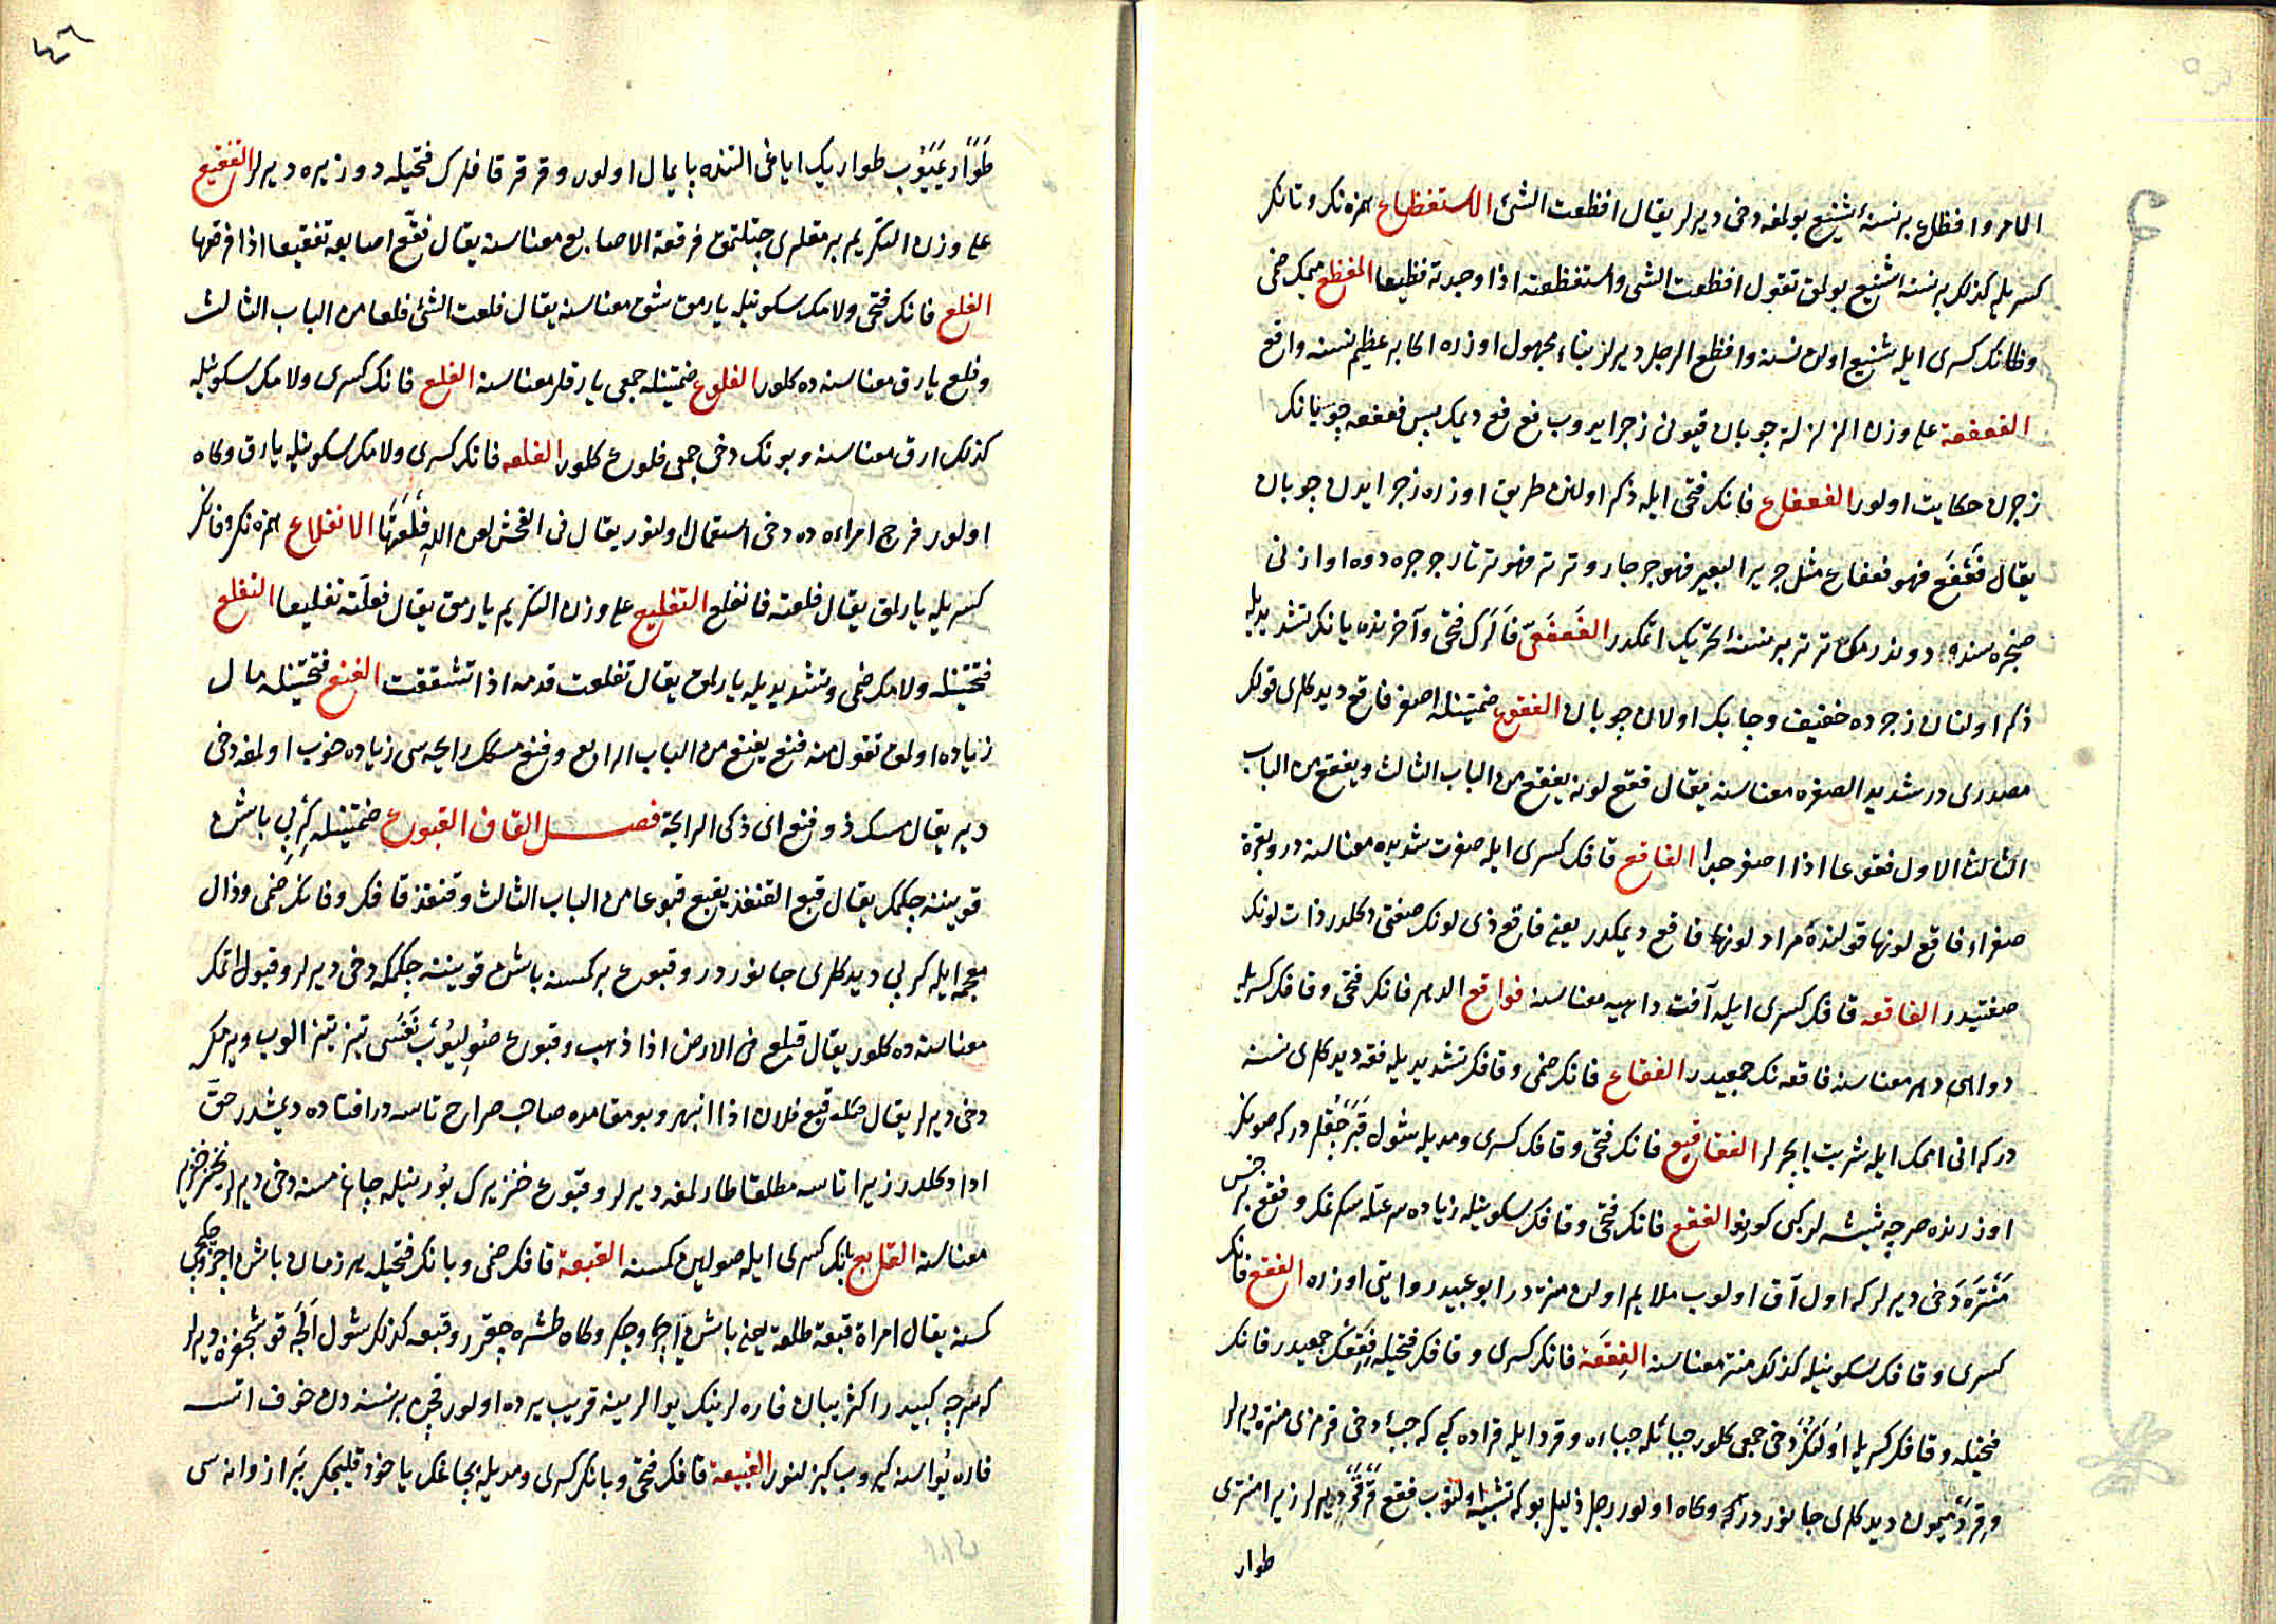 الامر وافظاع برنسنۀ شنيع بولمغه دخی ديرلر يقال افظعت الشئ الاستفظاع همزه نك وتانك
كسريله كذلك برنسنه شنيع بولمق تقول افظعت الشی واستفظعته اذا وجدته فظيعا المفظع ميمك ضمی
وظانك كسری ايله شنيع اولن نسنه وافظع الرجل ديرلر بناء مجهول اوزره اكا بر عظيم نسنه واقع
الفعفعة علی وزن الزلزلة چوبان قيونی زجر ايدوب فع فع ديمك پس فعفعه چوبانك
زجرن حكايت اولور الفعفاع فانك فتحی ايله ذكر اولنن طريق اوزره زجر ايدن چوبان
يقال فعفع فهو فعفاع مثل جرجر البعير فهو جرجار وترتر فهو ترتار جرجره دوه اوازنی
حنجره سنده دوندرمك ترتر برنسنۀ تحريك اتمكدر الفعفعی فالرك فتحی وآخرنده يانك تشديديله
ذكر اولنان زجرده خفيف وچابك اولان چوبان الفقوع ضمتينله اصفر فاقع ديدكلری قولك
مصدری در شديد الصفره معناسنه يقال فقع لونه يفقع من الباب الثالث ويفقع من الباب
الثالث الاول فقوعا اذا اصفر جدا الفاقع قافك كسری ايله صفرت شديده معناسنه در وبقرة
صفراء فاقع لونها قولنده مراد لونها فاقع ديمكدر يعنی فاقع ذی لونك صفتی دكلدر ذات لونك
صفتيدر الفاقعه قافك كسری ايله آفت داهيه معناسنه فواقع الدهر فانك فتحی وقافك كسريله
دواهی دهر معناسنه فاقعه نك جمعيدر الفقاع فانك ضمی وقافك تشديديله فقه ديدكلری نسنه
دركه انی اكمك ايله شربت ايچرلر الفقاقيع فانك فتحی وقافك كسری ومديله شول قبرجقلردركه صوينك
اوزرنده صرچه شيشه لر كبی كورينور الفقع فانك فتحی وقافك سكونيله زياده سرعتله سكرتمك وفقع بر جنس
منتره دخی ديرلر كه اول آق اولوب ملايم اولن منتره در ابو عبيد روايتی اوزره الفقع فانك
كسری وقافك سكونيله كذلك منتره معناسنه الفقعة فانك كسری وقافك فتحيله فقعك جمعيدر فانك
فتحيله وقافك كسريله اولنك دخی جمعی كلور جبائله جباءه وقرد ايله قراده كبی كه جبئ دخی قرمزی منتره ديرلر
وقرد ميمون ديدكلری جانوردر وكاه اولور رجل ذليل بوكه تشبيه اولنوب فقع قرقر ديرلر زيرا منتری
طوار
طوار يبيوب طواريك اياغی التنده پايمال اولور وقرقر قافلرك فتحيله دوز يره ديرلر التفقيع
علی وزن التكريم برمقلری چتلتمق فرقعة الاصابع معناسنه يقال فقع اصابعه تفقيعا اذا فرقعها
الفلع فانك فتحی ولامك سكونيله يارمق شق معناسنه يقال فلعت الشئ فلعا من الباب الثالث
وفلع يارق معناسنه ده كلور الفلوع ضمتينله جمعی يارقلر معناسنه الفلع فانك كسری ولامك سكونيله
كذلك يارق معناسنه وبونك دخی جمعی فلوع كلور الفلعه فانك كسری ولامك سكونيله يارق وكاه
اولور فرج امراءه ده دخی استعمال اولنور يقال فی الفحش لعن الله فلعتها الانفلاع همزه نك وفانك
كسريله يارلمق يقال فلعته فانفلع التفليع علی وزن التكريم يارمق يقال فلعته تفليعا التفلع
فتحتينله ولامك ضمی وتشديديله يارلمق يقال تفلعت قدمه اذا تشققت الفنع فتحتينله مال
زياده اولمق تقول منه فنع يفنع من الباب الرابع وفنع مسكك رايحه سی زياده خوب اولمغه دخی
دير يقال مسك ذو فنع ای ذكی الرايحة فصل القاف القبوع ضمتينله كرپی باشن
قويننه چكمك يقال قبع القنفذ يقبع قبوعا من الباب الثالث وقنفذ قافك وفانك ضمی وذال
معجمه ايله كرپی ديدكلری جانوردر وقبوع بركمسنه باشن قويننه چكمكه دخی ديرلر وقبول اتمك
معناسنه ده كلور يقال قبع فی الارض اذا ذهب وقبوع صوليوب نفسی تيز تيز الوب ويرمك
دخی ديرلر يقال قبع فلان اذا انبهر وبو مقامده صاحب صراح تاسه درافتاده ديمشدر حق
ادا دكلدر زيرا تاسه مطلقا طارلمغه ديرلر وقبوع خنزيرك بورنيله چاغرمسنه دخی ديرلر
معناسنه القابع بانك كسری ايله صوليين كمسنه القبعة قافك ضمی وبانك فتحيله هر زمان باشن اچوب چكيجی
كمسنه يقال امراة قبعة طلعة يعنی باشن اچر وچكر وكاه طشره چقرر وقبعه كذلك شول الجه قوشجغزه ديرلر
كه سرچه كبيدر اكثر يبان فاره لرينك يوالرينه قريب يرده اولور قچن برنسنه دن خوف اتسه
فاره يواسنه كيروب كيزلنور القبيعة قافك فتحی وبانك كسری ومديله بچاغك ياخود قليجك پرازوانه سی